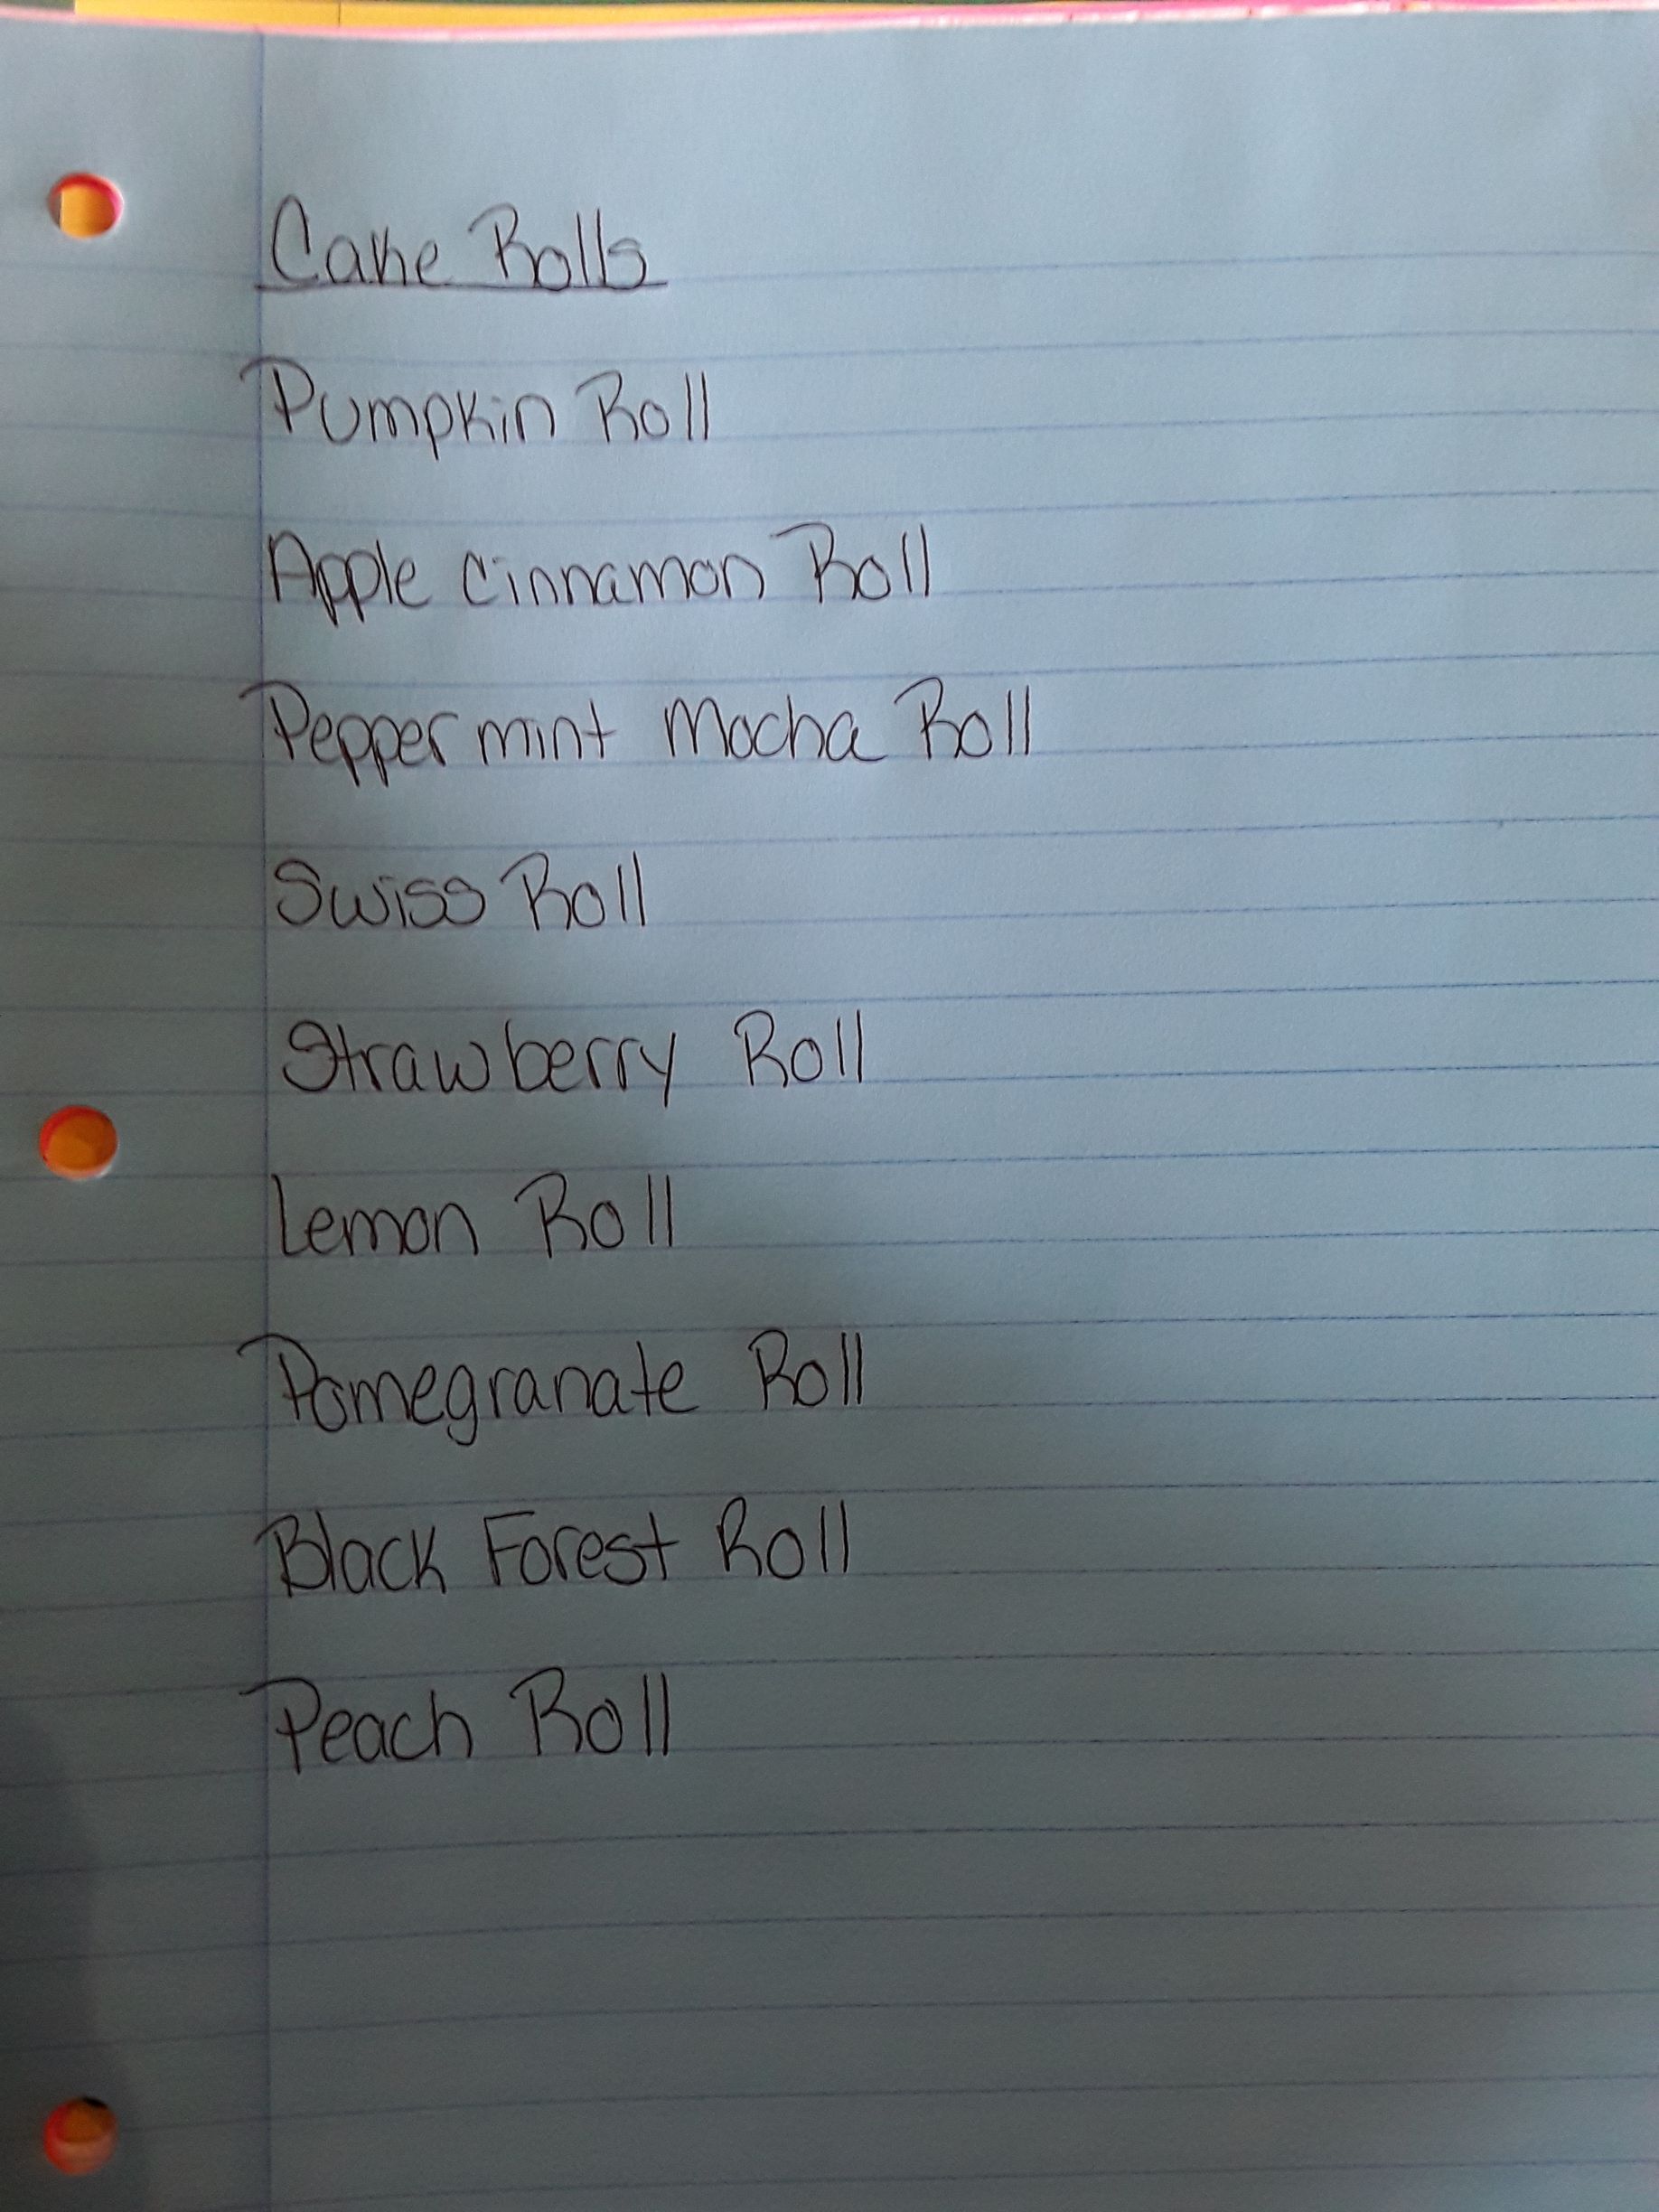 Cake Rolls
Pumpkin Roll
Apple Cinnamon Roll
Peppermint Mocha Roll
Swiss Roll
Strawberry Roll
Lemon Roll
Pomegranate Roll
Black Forest Roll
Peach Roll